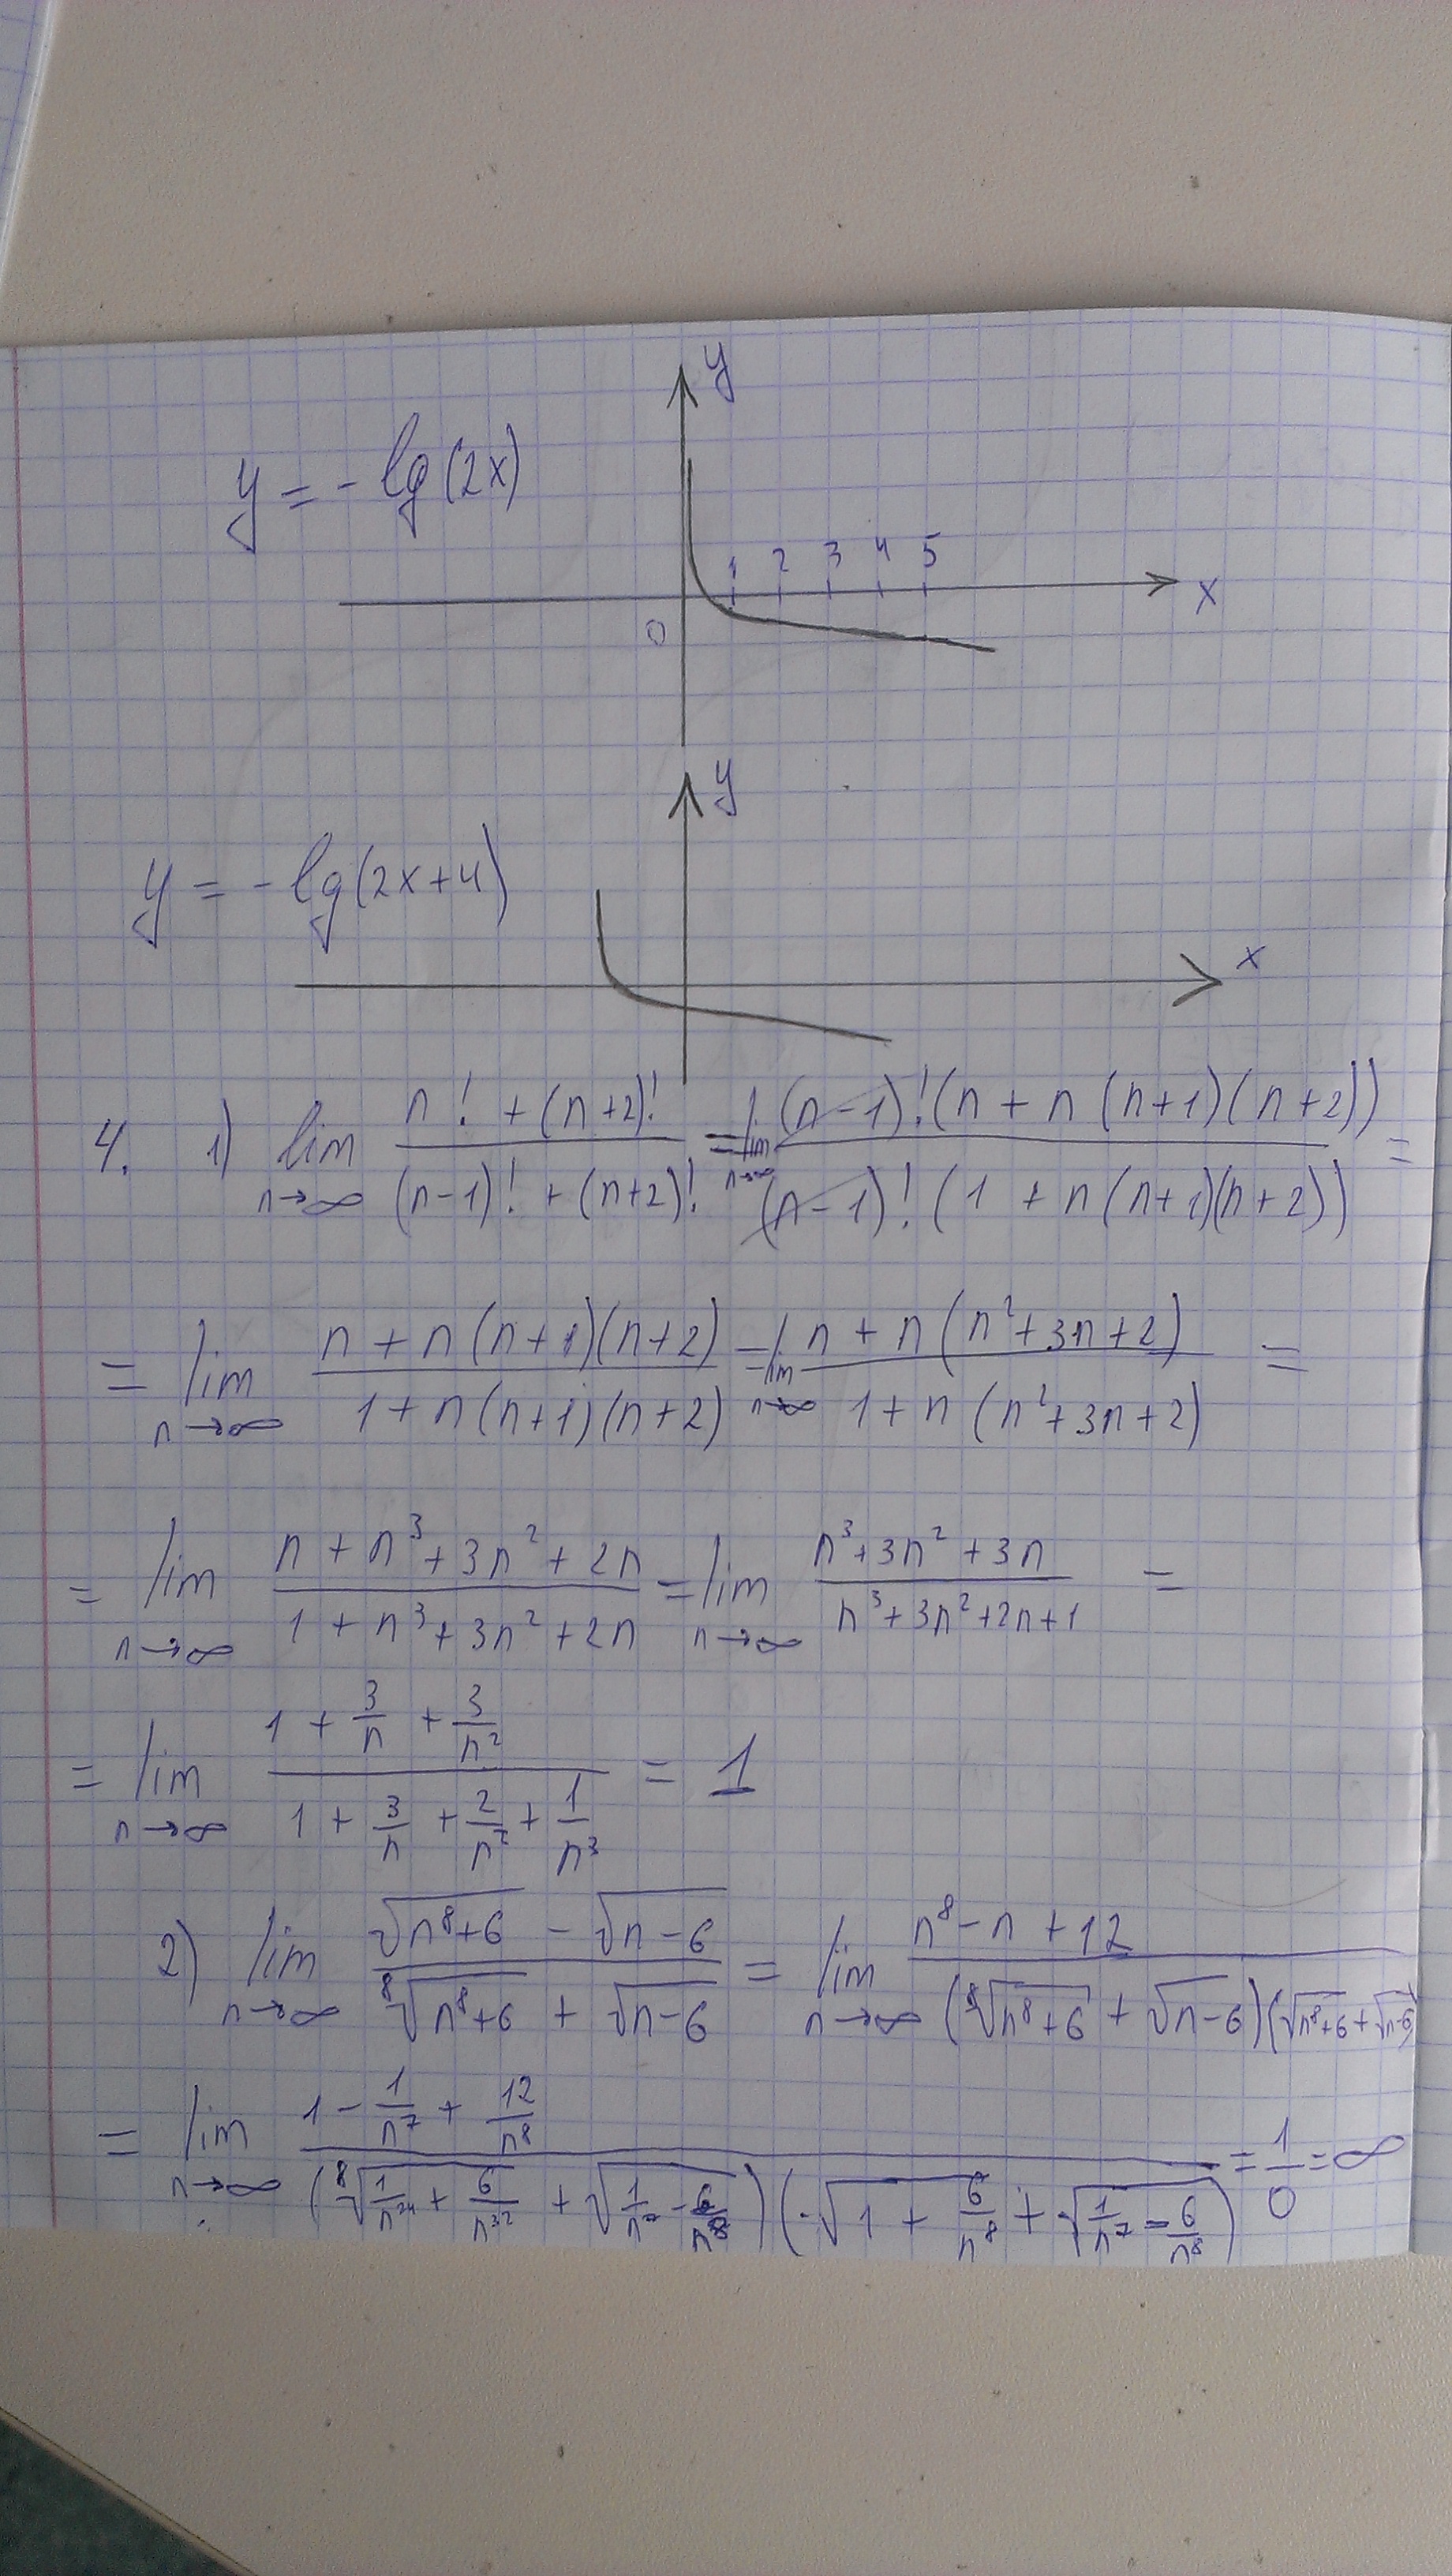 y
y = - lg(2x)
1 2 3 4 5
x
0
y
y = - lg(2x+4)
x
4. 1) lim n→∞ (n! + (n+2)!)/((n-1)! + (n+2)!) = lim n→∞ ((n-1)!(n + n(n+1)(n+2)))/((n-1)!(1 + n(n+1)(n+2))) =
= lim n→∞ (n + n(n+1)(n+2))/(1 + n(n+1)(n+2)) = lim n→∞ (n + n(n²+3n+2))/(1 + n(n²+3n+2)) =
= lim n→∞ (n + n³ + 3n² + 2n)/(1 + n³ + 3n² + 2n) = lim n→∞ (n³+3n²+3n)/(n³+3n²+2n+1) =
= lim n→∞ (1 + 3/n + 3/n²)/(1 + 3/n + 2/n² + 1/n³) = 1
2) lim n→∞ (√(n⁸+6) - √(n-6))/(⁸√(n⁸+6) + √(n-6)) = lim n→∞ (n⁸ - n + 12)/((⁸√(n⁸+6) + √(n-6))(√(n⁸+6) + √(n-6)))
= lim n→∞ (1 - 1/n⁷ + 12/n⁸)/((⁸√(1/n²⁴ + 6/n³²) + √(1/n⁷ - 6/n⁸))(√(1 + 6/n⁸) + √(1/n⁷ - 6/n⁸))) = 1/0 = ∞